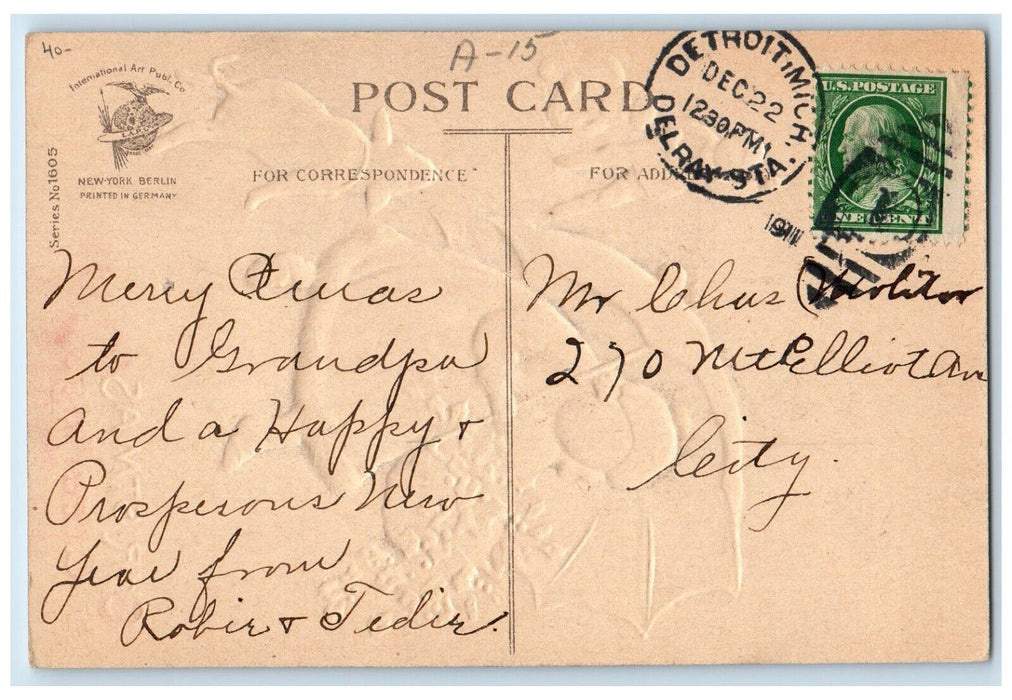 40-
A-15
International Art Publ. Co
NEW-YORK BERLIN
PRINTED IN GERMANY
Series No 1605
POST CARD
FOR CORRESPONDENCE
FOR ADD
DETROIT, MICH.
DEC 22
1230PM
DELRAY STA.
1911
U.S. POSTAGE
ONE CENT
Merry Xmas
to Grandpa
And a Happy +
Prosperous New
Year from
Robie + Tedie.
Mr Chas Molitor
270 Mt Elliot Av
City.